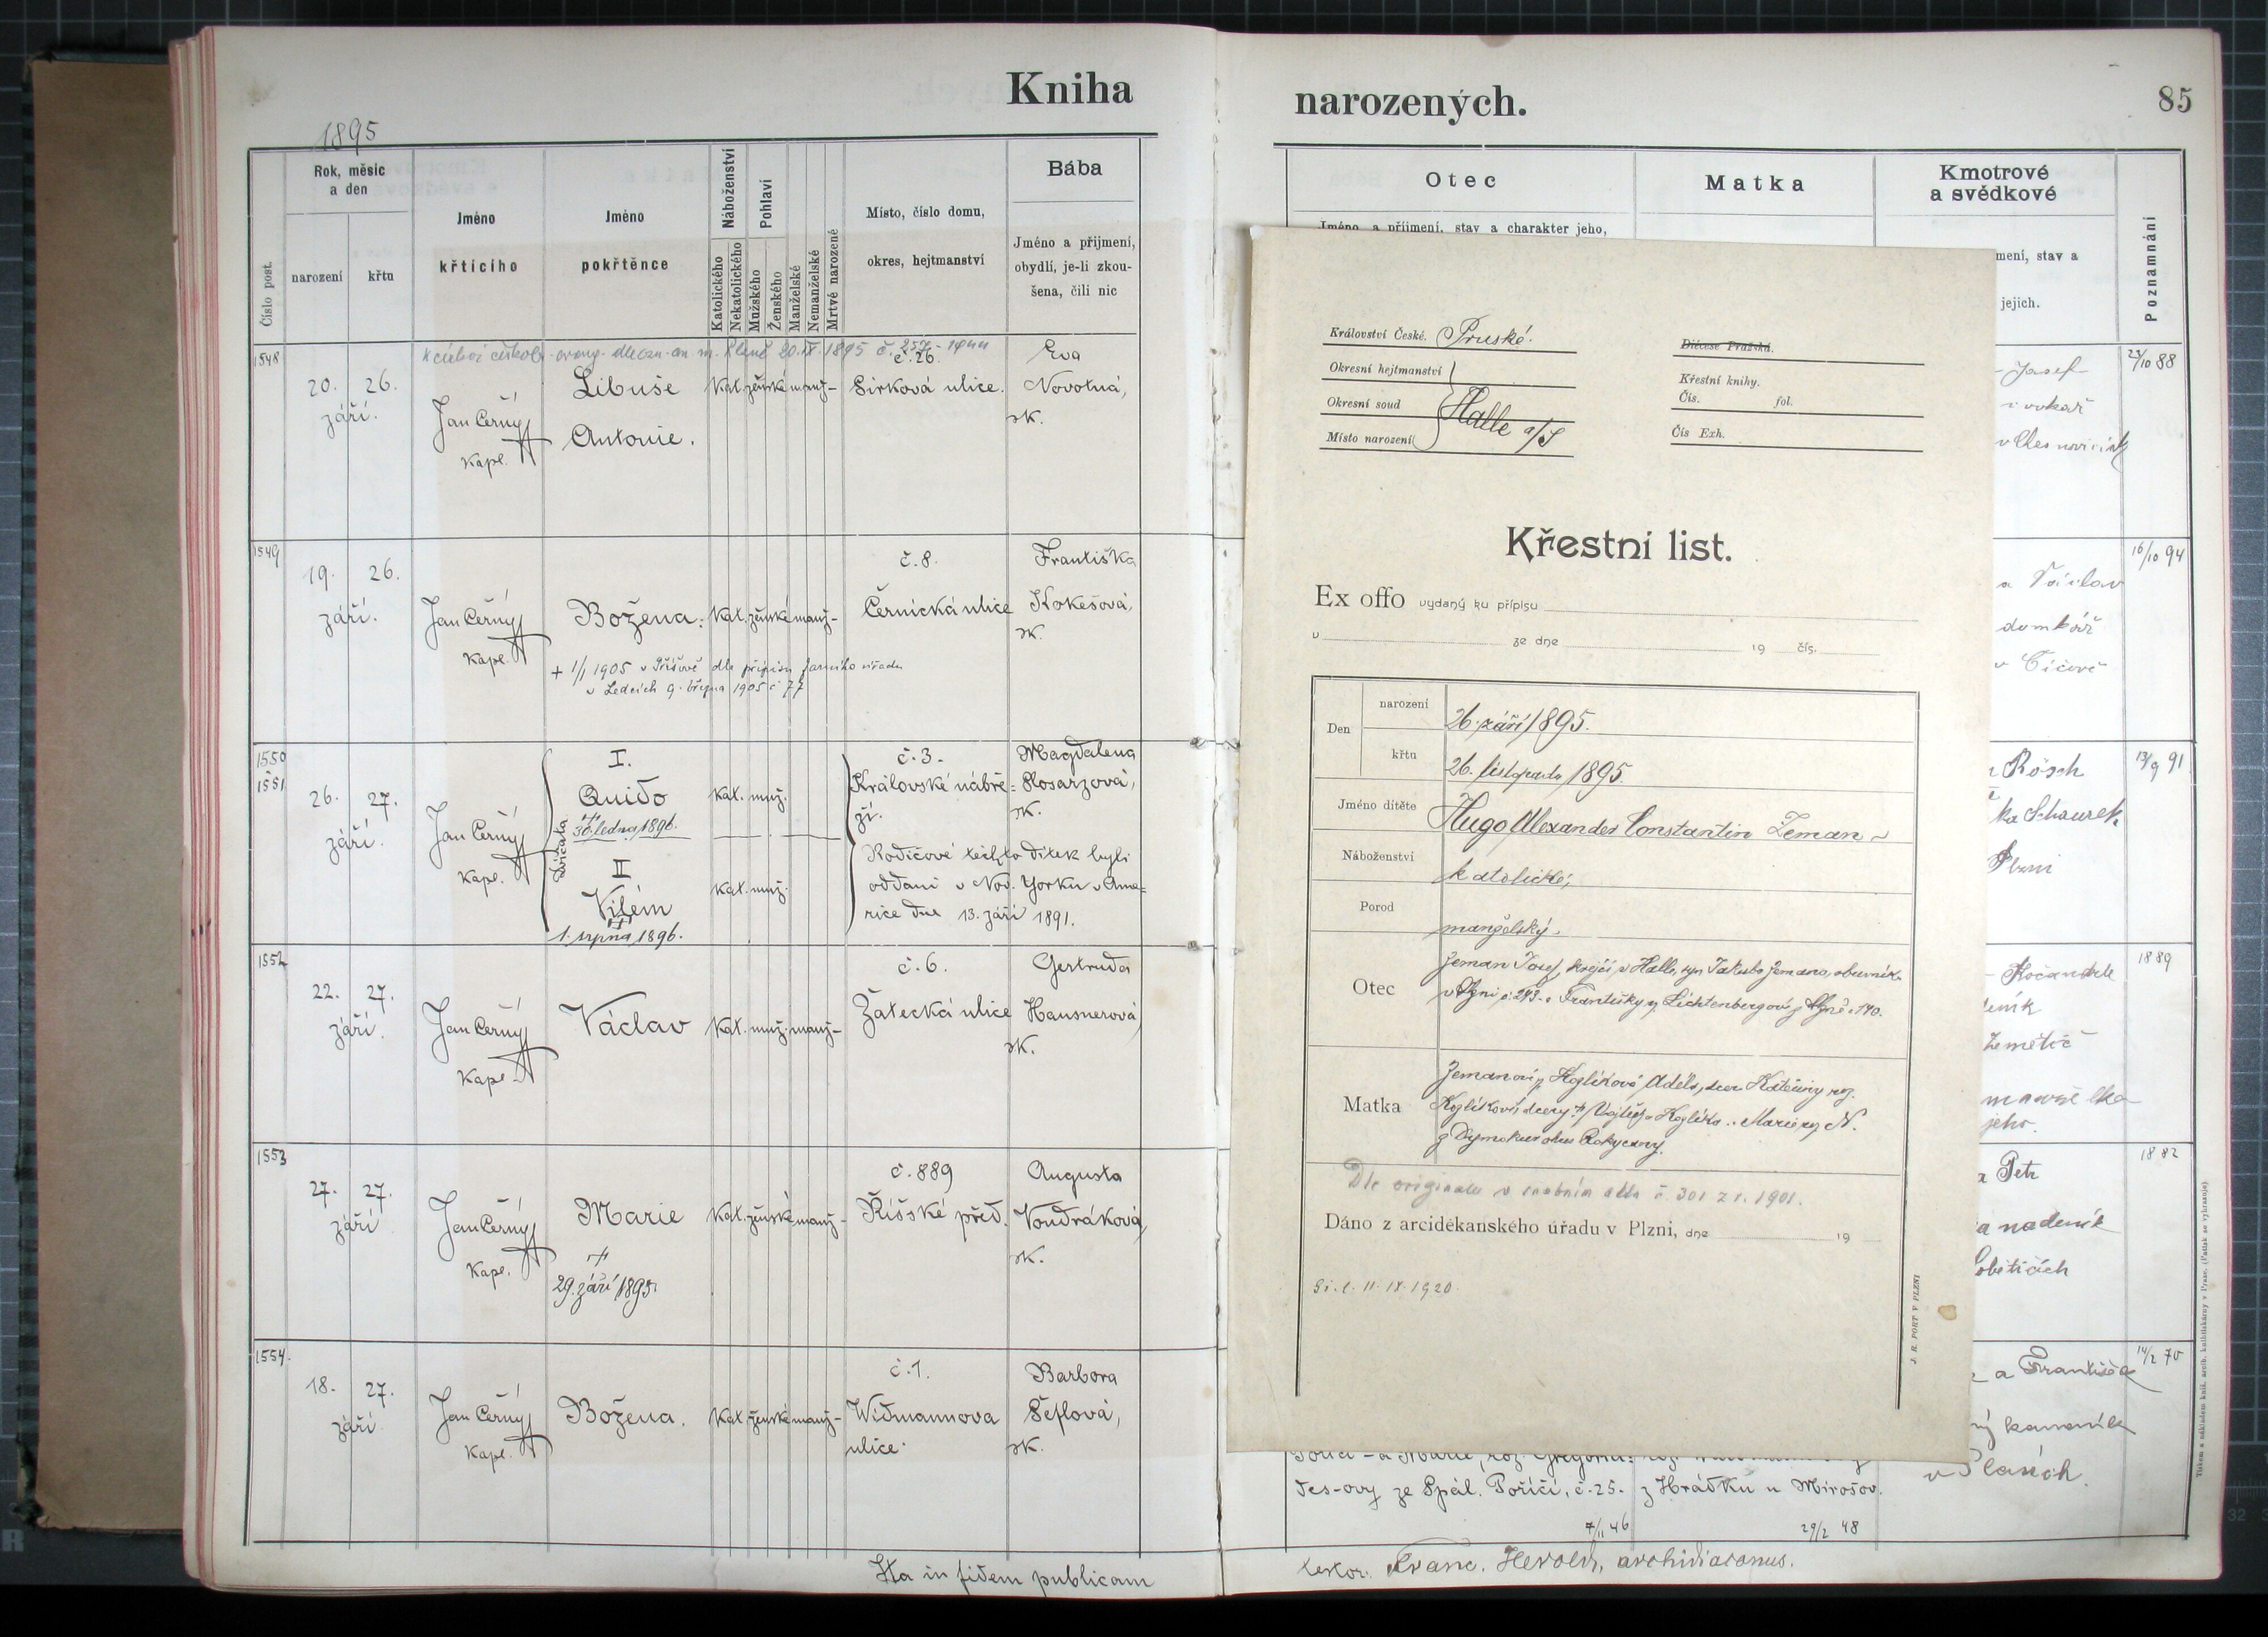 Kniha
1895
Číslo post.
Rok, měsíc
a den
narození
křtu
Jméno
křtícího
Jméno
pokřtěnce
Náboženství
Katolického
Nekatolického
Pohlaví
Mužského
Ženského
Manželské
Nemanželské
Mrtvě narozené
Místo, číslo domu,
okres, hejtmanství
Bába
Jméno a přijmení,
obydlí, je-li zkou-
šena, čili nic
1548
20. 26.
září.
Jan Černý
Kapl.
Libuše
Antonie.
Kat. ženské manž-
č. 26.
Sirková ulice.
Eva
Novotná,
zk.
1549
19. 26.
září.
Jan Černý
Kapl.
Božena.
+ 1/1 1905 v dle přípisu farního úřadu
v Ledcích 9. března 1905 č 77
Kat. ženské manž-
č. 8.
Černická ulice
Františka
Kokešová,
zk.
1550
1551
26. 27.
září.
Jan Černý
Kapl.
I.
Quido
30. ledna 1896.
II
Vilém
1. srpna 1896.
Kat. muž.
Kat. muž.
č. 3.
Královské nábře-
ží.
Rodičové těchto dítek byli
oddáni v Nov. Yorku v Ame-
rice dne 13. září 1891.
Magdalena
zk.
1552
22. 27.
září.
Jan Černý
Kapl.
Václav
Kat. muž. manž-
č. 6.
Žatecká ulice
Gertruda
Hausnerová,
zk.
1553
27. 27.
září
Jan Černý
Kapl.
Marie
29. září 1895.
Kat. ženské manž-
č. 889
Říšské před.
Augusta
Vondráková,
zk.
1554.
18. 27.
září
Jan Černý
Kapl.
Božena.
Kat. ženské manž-
č. 1.
Widmannova
ulice.
Barbora
Šeflová,
zk.
Ita in fidem publicam
narozených.
85
Otec
Jméno a příjmení, stav a charakter jeho,
Matka
Kmotrové
a svědkové
mení, stav a
jejich.
Poznamnání
Josef
23/10 88
16/10 94
a Václav
domkář
v
Rösch
13/9 91
ka Schaurek
Plzni
1889
manželka
jeho.
a Petr
1882
a nádeník
a František
14/2 70
v Plasích.
Království České. Pruské.
Okresní hejtmanství
Okresní soud
Místo narození
Halle a/S
Diécese Pražská.
Křestní knihy.
Čís. fol.
Čís Exh.
Křestní list.
Ex offo vydaný ku přípisu
v ze dne 19 čís.
Den
narození
26. září 1895.
křtu
26. listopadu 1895
Jméno dítěte
Hugo Alexander Constantin Zeman
Náboženství
katolické,
Porod
manželský.
Otec
Zeman Josef, krejčí v Halle, syn Jakuba Zemana,
v Plzni č. 243. a Františky r. Lichtenbergové z č. 140.
Matka
Zemanová r. Koglíková Adéla, dcera Kateřiny roz.
Koglíkové, dcery Koglíka a Marie roz. N.
z Rokycany.
Dle originalu v č. 301 z r. 1901.
Dáno z arcidékanského úřadu v Plzni, dne 19
11. IX. 1920.
J. R. PORT V PLZNI
Tes-ovy ze Spál. Poříčí, č. 25.
7/11 46
z Hrádku u Mirošov.
29/2 48
Franc. Herold, archidiaconus.